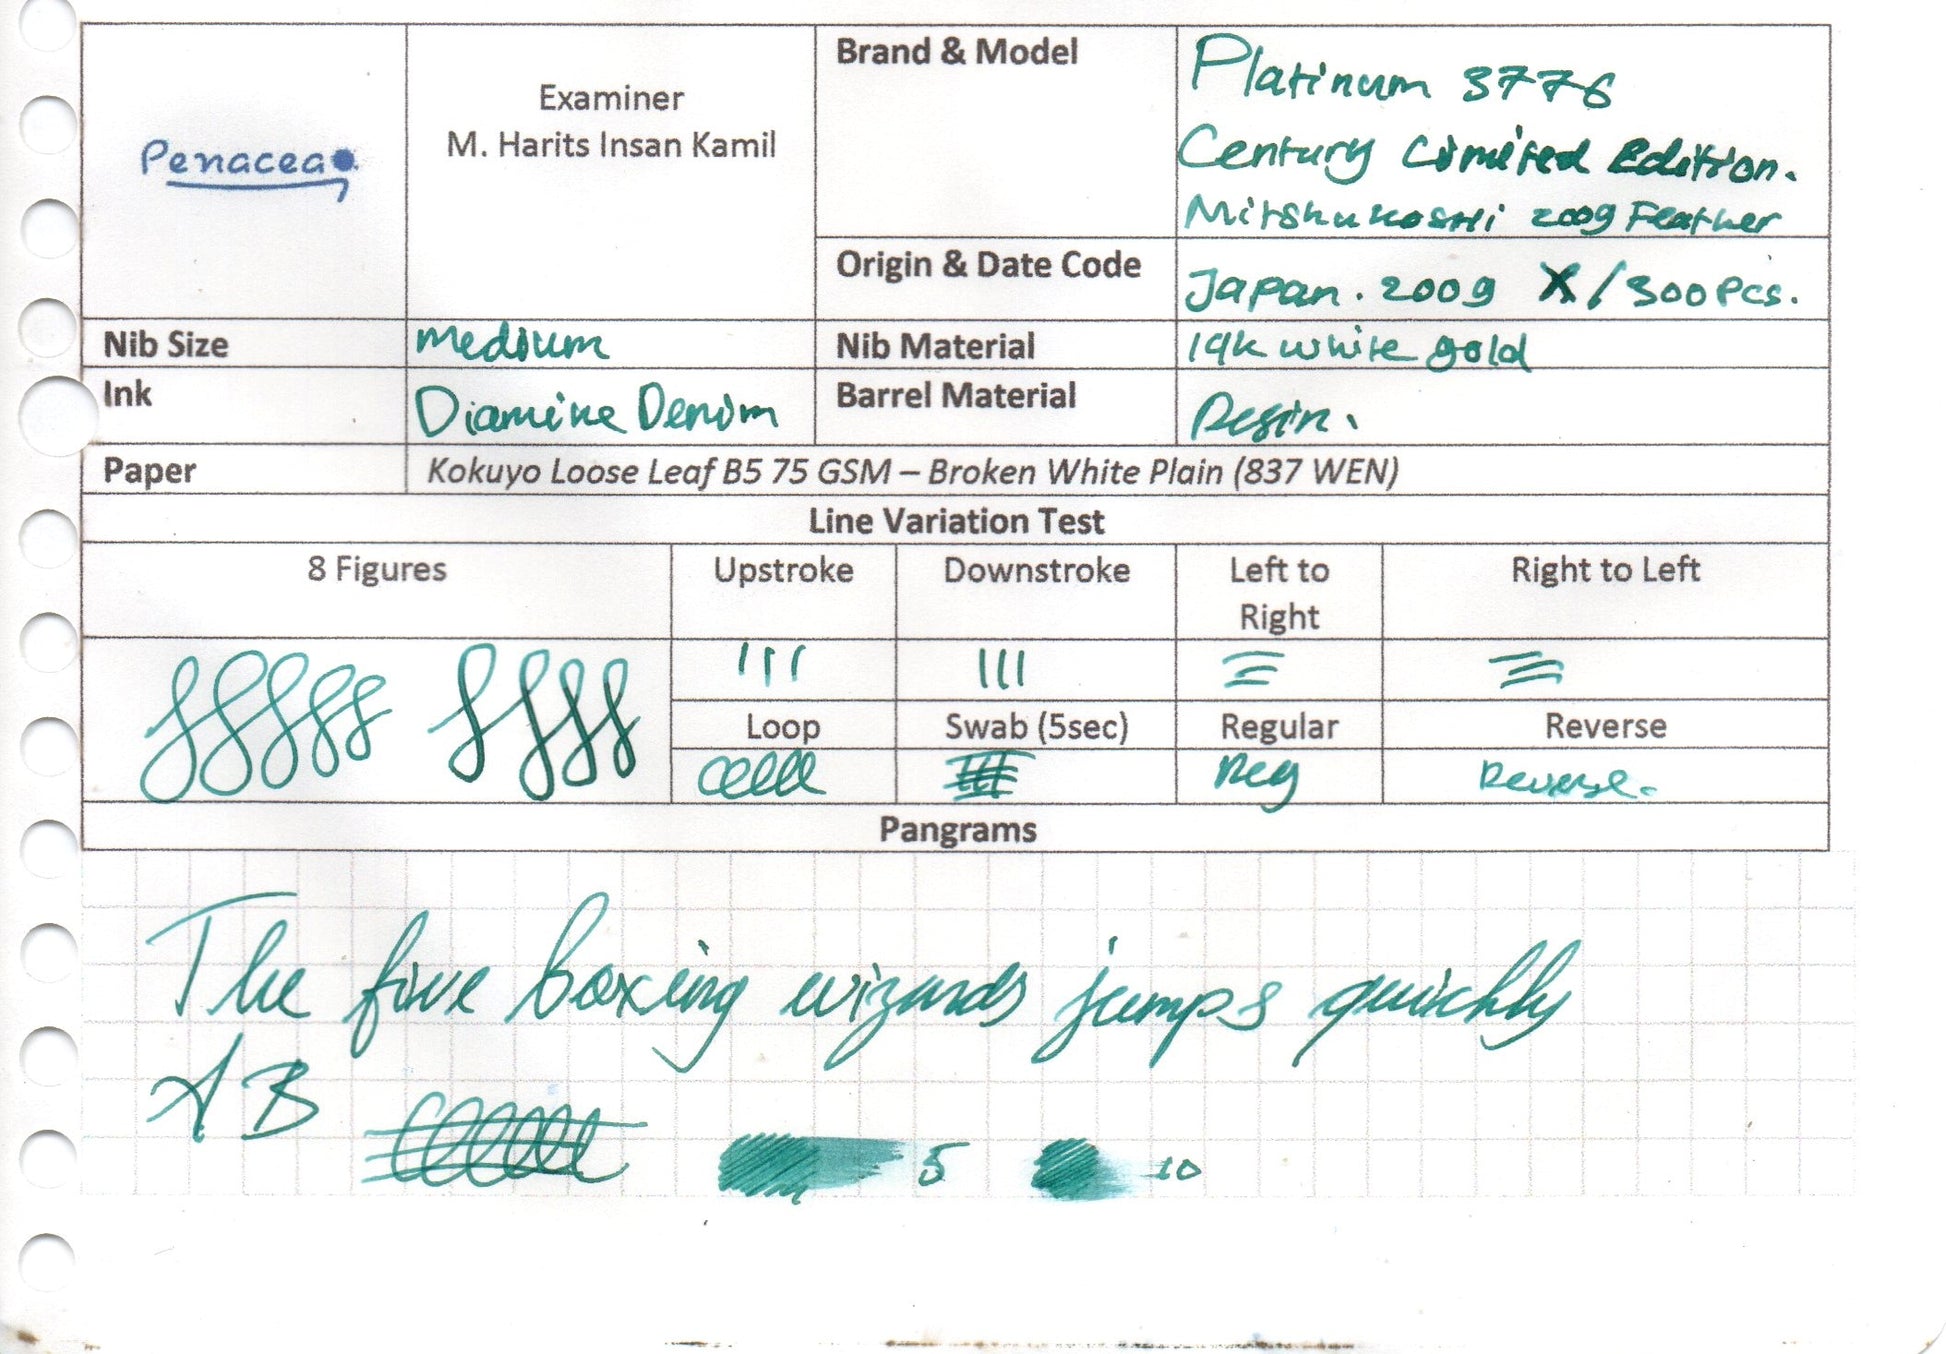 Penacea
Examiner
M. Harits Insan Kamil
Brand & Model
Platinum 3776
Century Limited Edition.
Mitshukoshi 2009 Feather
Origin & Date Code
Japan. 2009 X/300 Pcs.
Nib Size
Medium
Nib Material
14k white gold
Ink
Diamine Denim
Barrel Material
Resin.
Paper
Kokuyo Loose Leaf B5 75 GSM – Broken White Plain (837 WEN)
Line Variation Test
8 Figures
Upstroke
Downstroke
Left to
Right
Right to Left
Loop
Swab (5sec)
Regular
Reverse
Reg
Reverse.
Pangrams
The five boxing wizards jumps quickly
A B
5
10